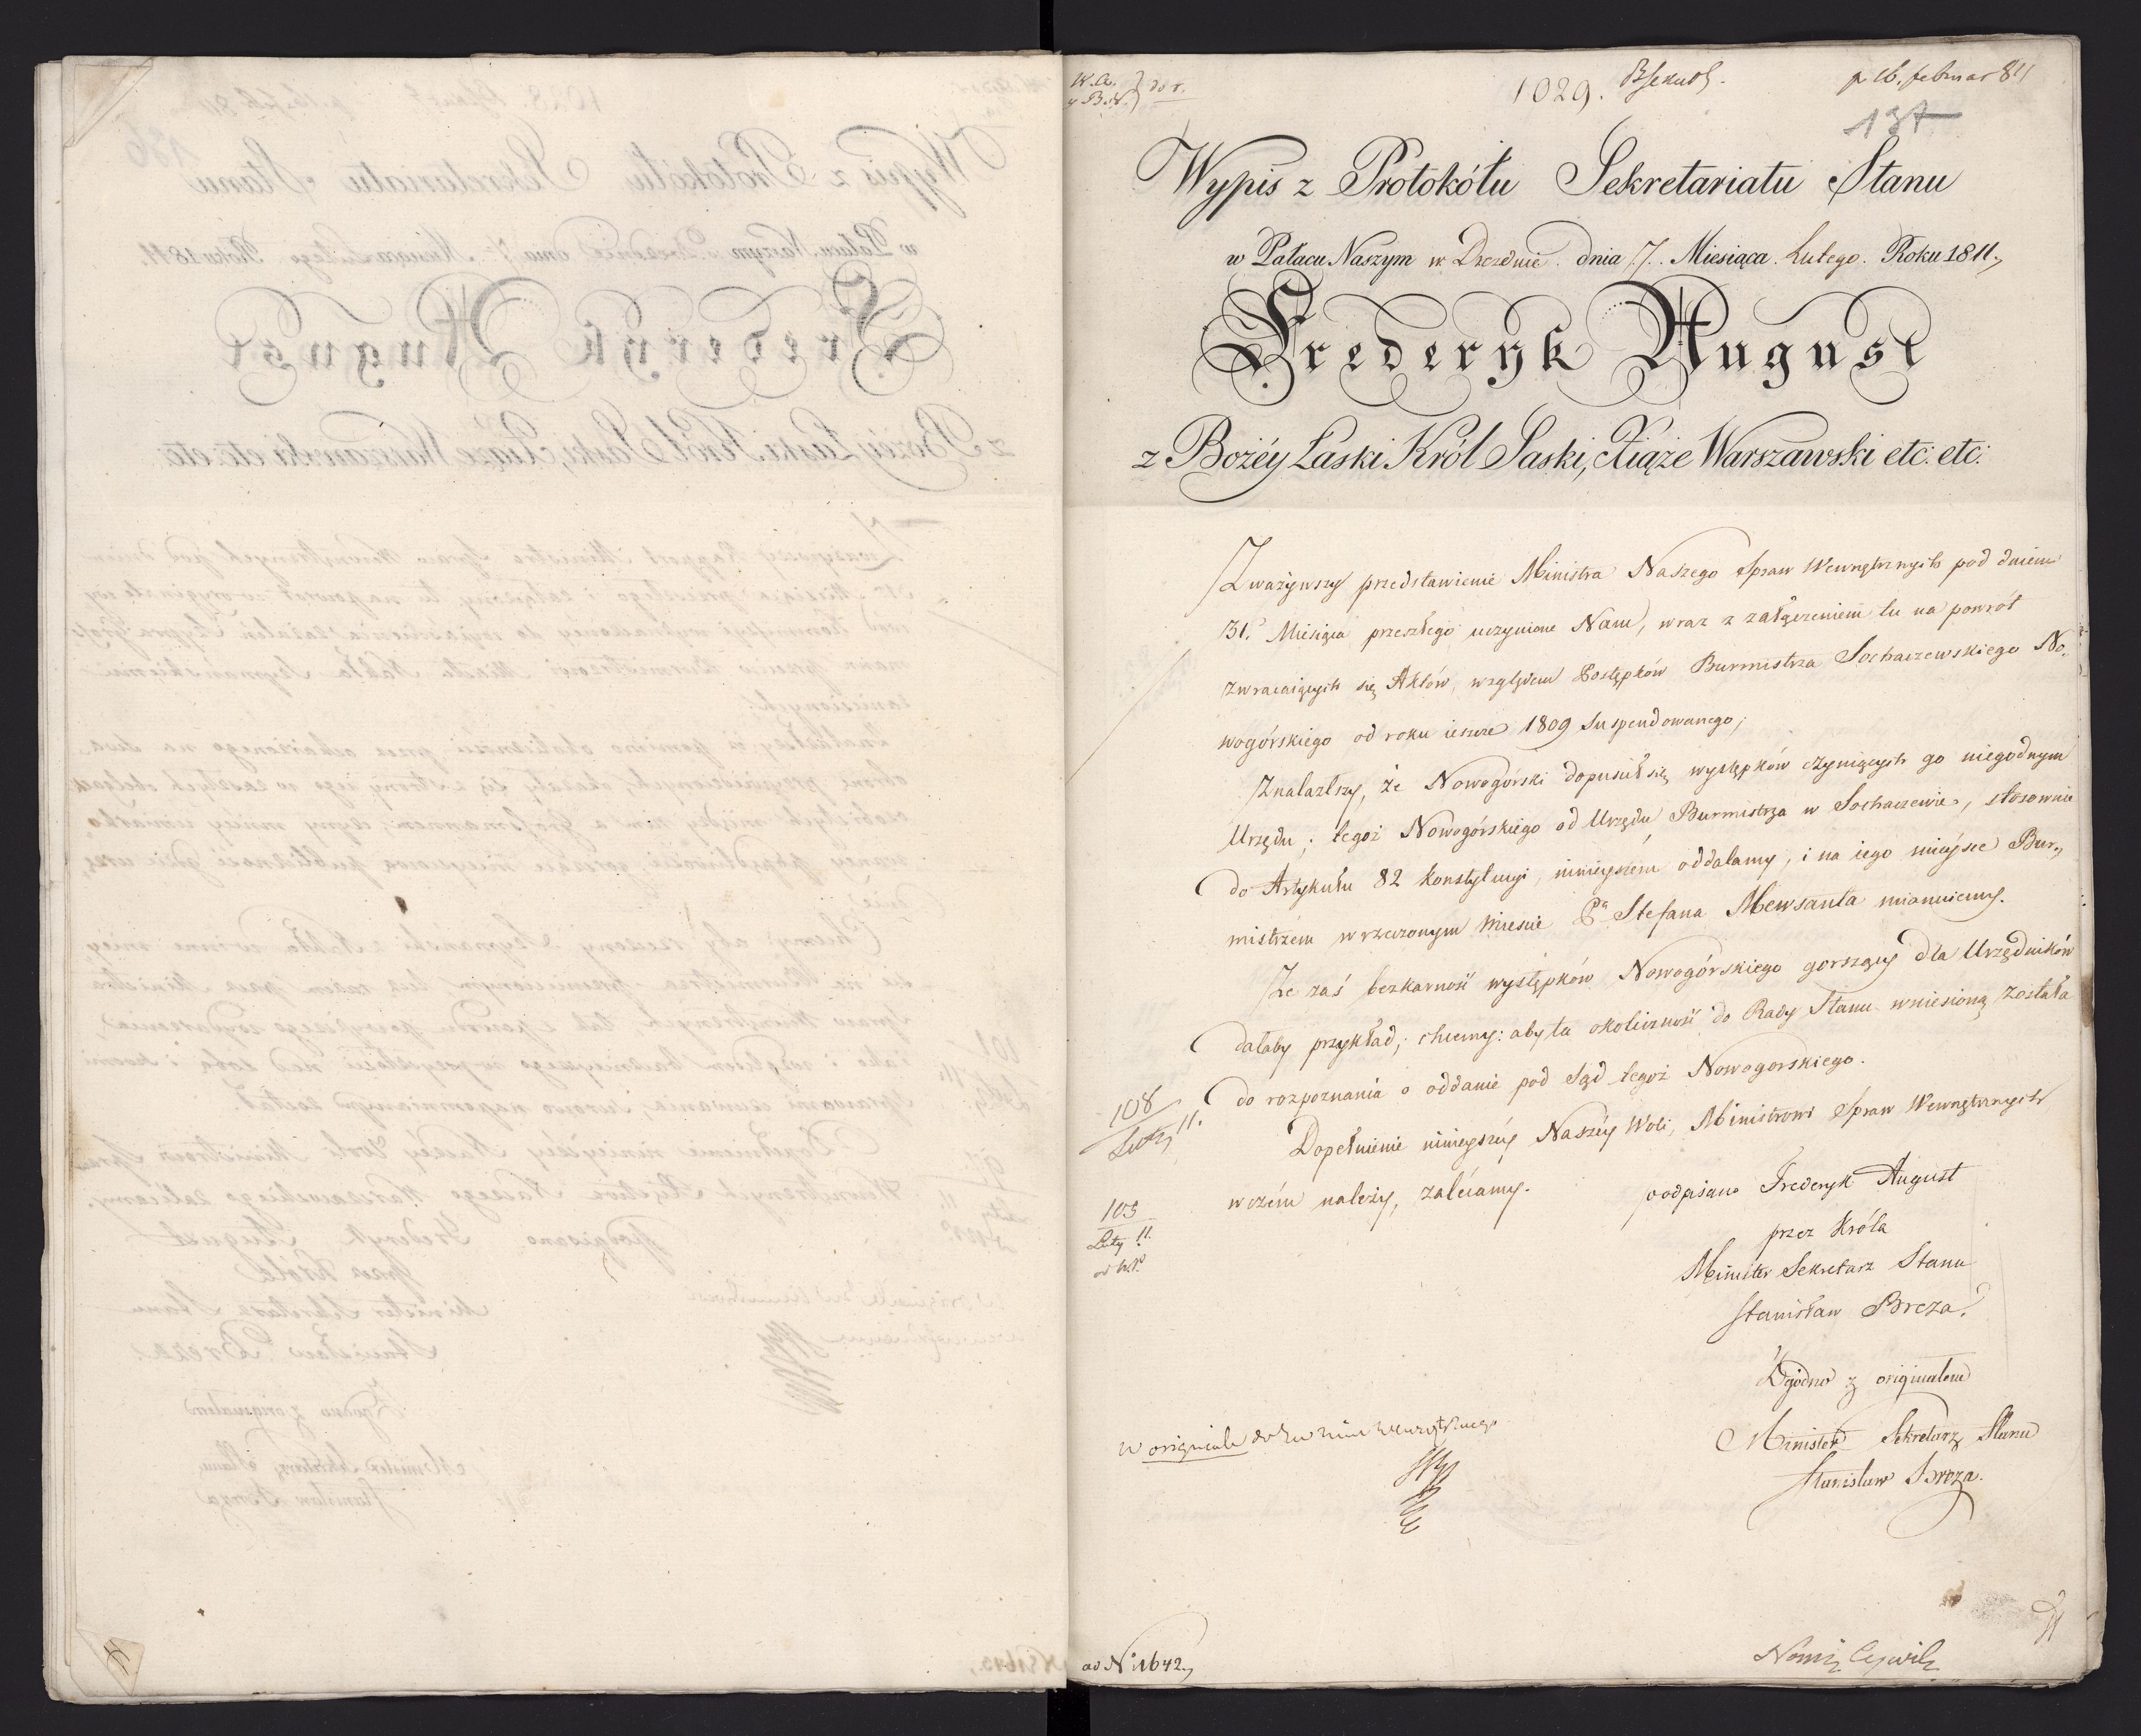 1029.
p 16. februar 811
137
Wypis z Protokółu Sekretariatu Stanu
w Pałacu Naszym w Dreznie dnia 7. Miesiąca Lutego. Roku 1811.
Frederyk August
z Bożéy Łaski Król Saski, Xiąże Warszawski etc: etc:
Zważywszy przedstawienie Ministra Naszego Spraw Wewnętrznych pod dniem
31. Miesiąca przeszłego uczynione Nam, wraz z załączeniem tu na powrót
zwracaiących się Aktów, względem Postępków Burmistrza Sochaczewskiego No-
wogórskiego od roku ieszcze 1809 suspendowanego;
Znalazłszy, że Nowogórski dopuścił się występków czyniących go niegodnym
Urzędu; tegoż Nowogórskiego od Urzędu Burmistrza w Sochaczewie, stosownie
do Artykułu 82 Konstytucyi, ninieyszem oddalamy, i na iego mieysce Bur-
mistrzem w rzeczonym Miescie Pa Stefana Mewsanta mianuiemy.
Że zaś bezkarność występków Nowogórskiego gorszący dla Urzędników
dałaby przykład; chcemy: aby ta okoliczność do Rady Stanu wniesioną została
do rozpoznania o oddanie pod Sąd tegoż Nowogorskiego.
Dopełnienie ninieyszéy Naszéy Woli, Ministrowi Spraw Wewnętrznych
w czém należy, zalécamy.
108
Luty 11.
103
Luty 11.
podpisano Frederyk August
przez Króla
Minister Sekretarz Stanu
Stanisław Breza.
Zgodno z originałem
Minister Sekretarz Stanu
Stanisław Breza.
w originale
ad No 1642.